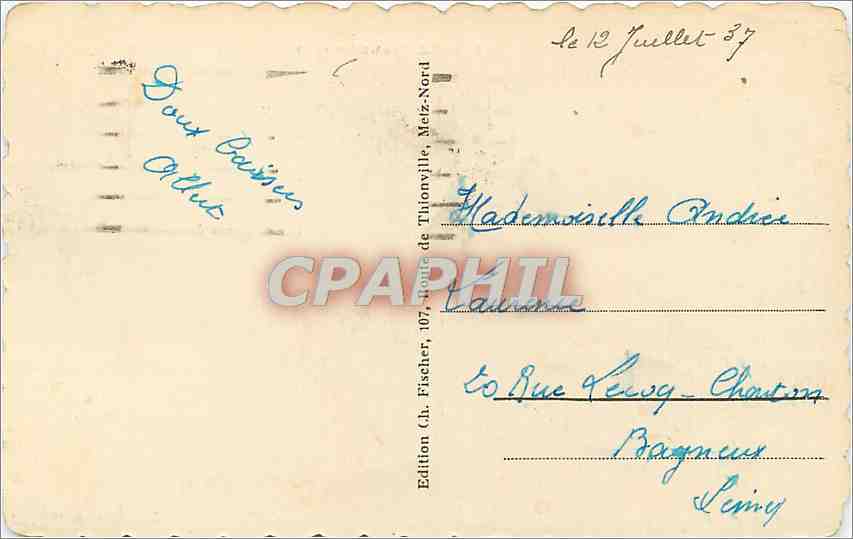 le 12 Juillet 37
Doux baisers
Albert
Edition Ch. Fischer, 107, Route de Thionville, Metz-Nord
Mademoiselle Andrée
CPAPHIL
Laurence
20 Rue Lecoq-
Bagneux